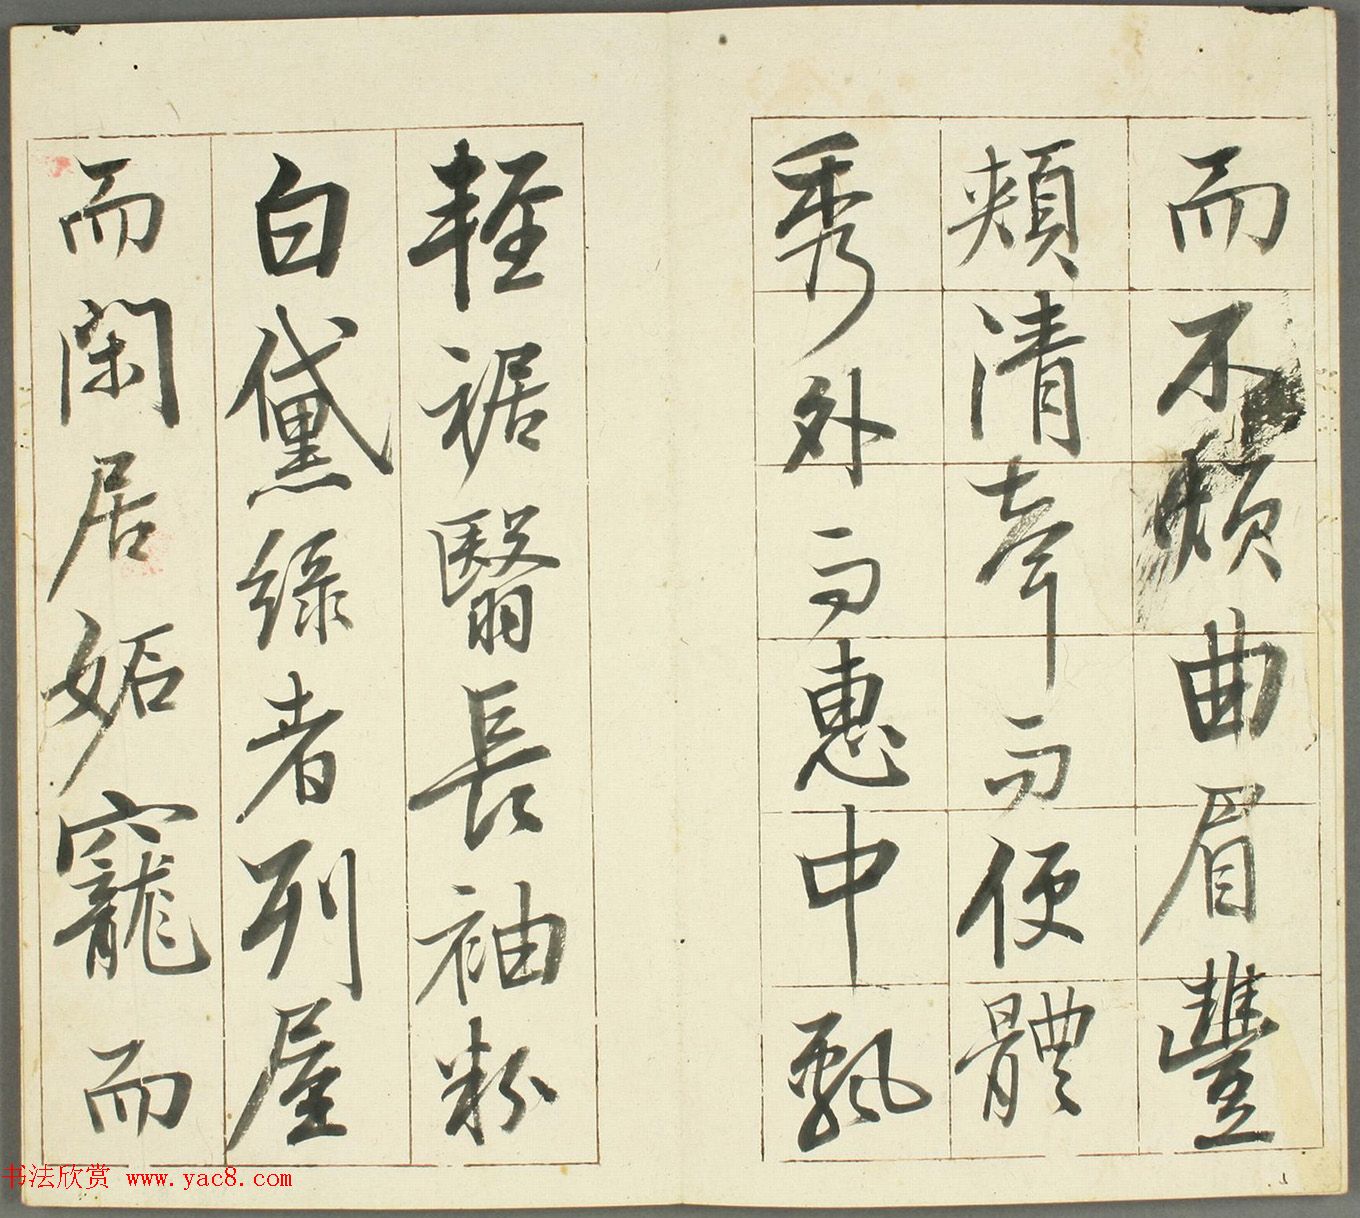 而不煩曲眉豐
頰清聲而便體
秀外而惠中飄
輕裾翳長袖粉
白黛綠者列屋
而閑居妬寵而
书法欣赏 www.yac8.com